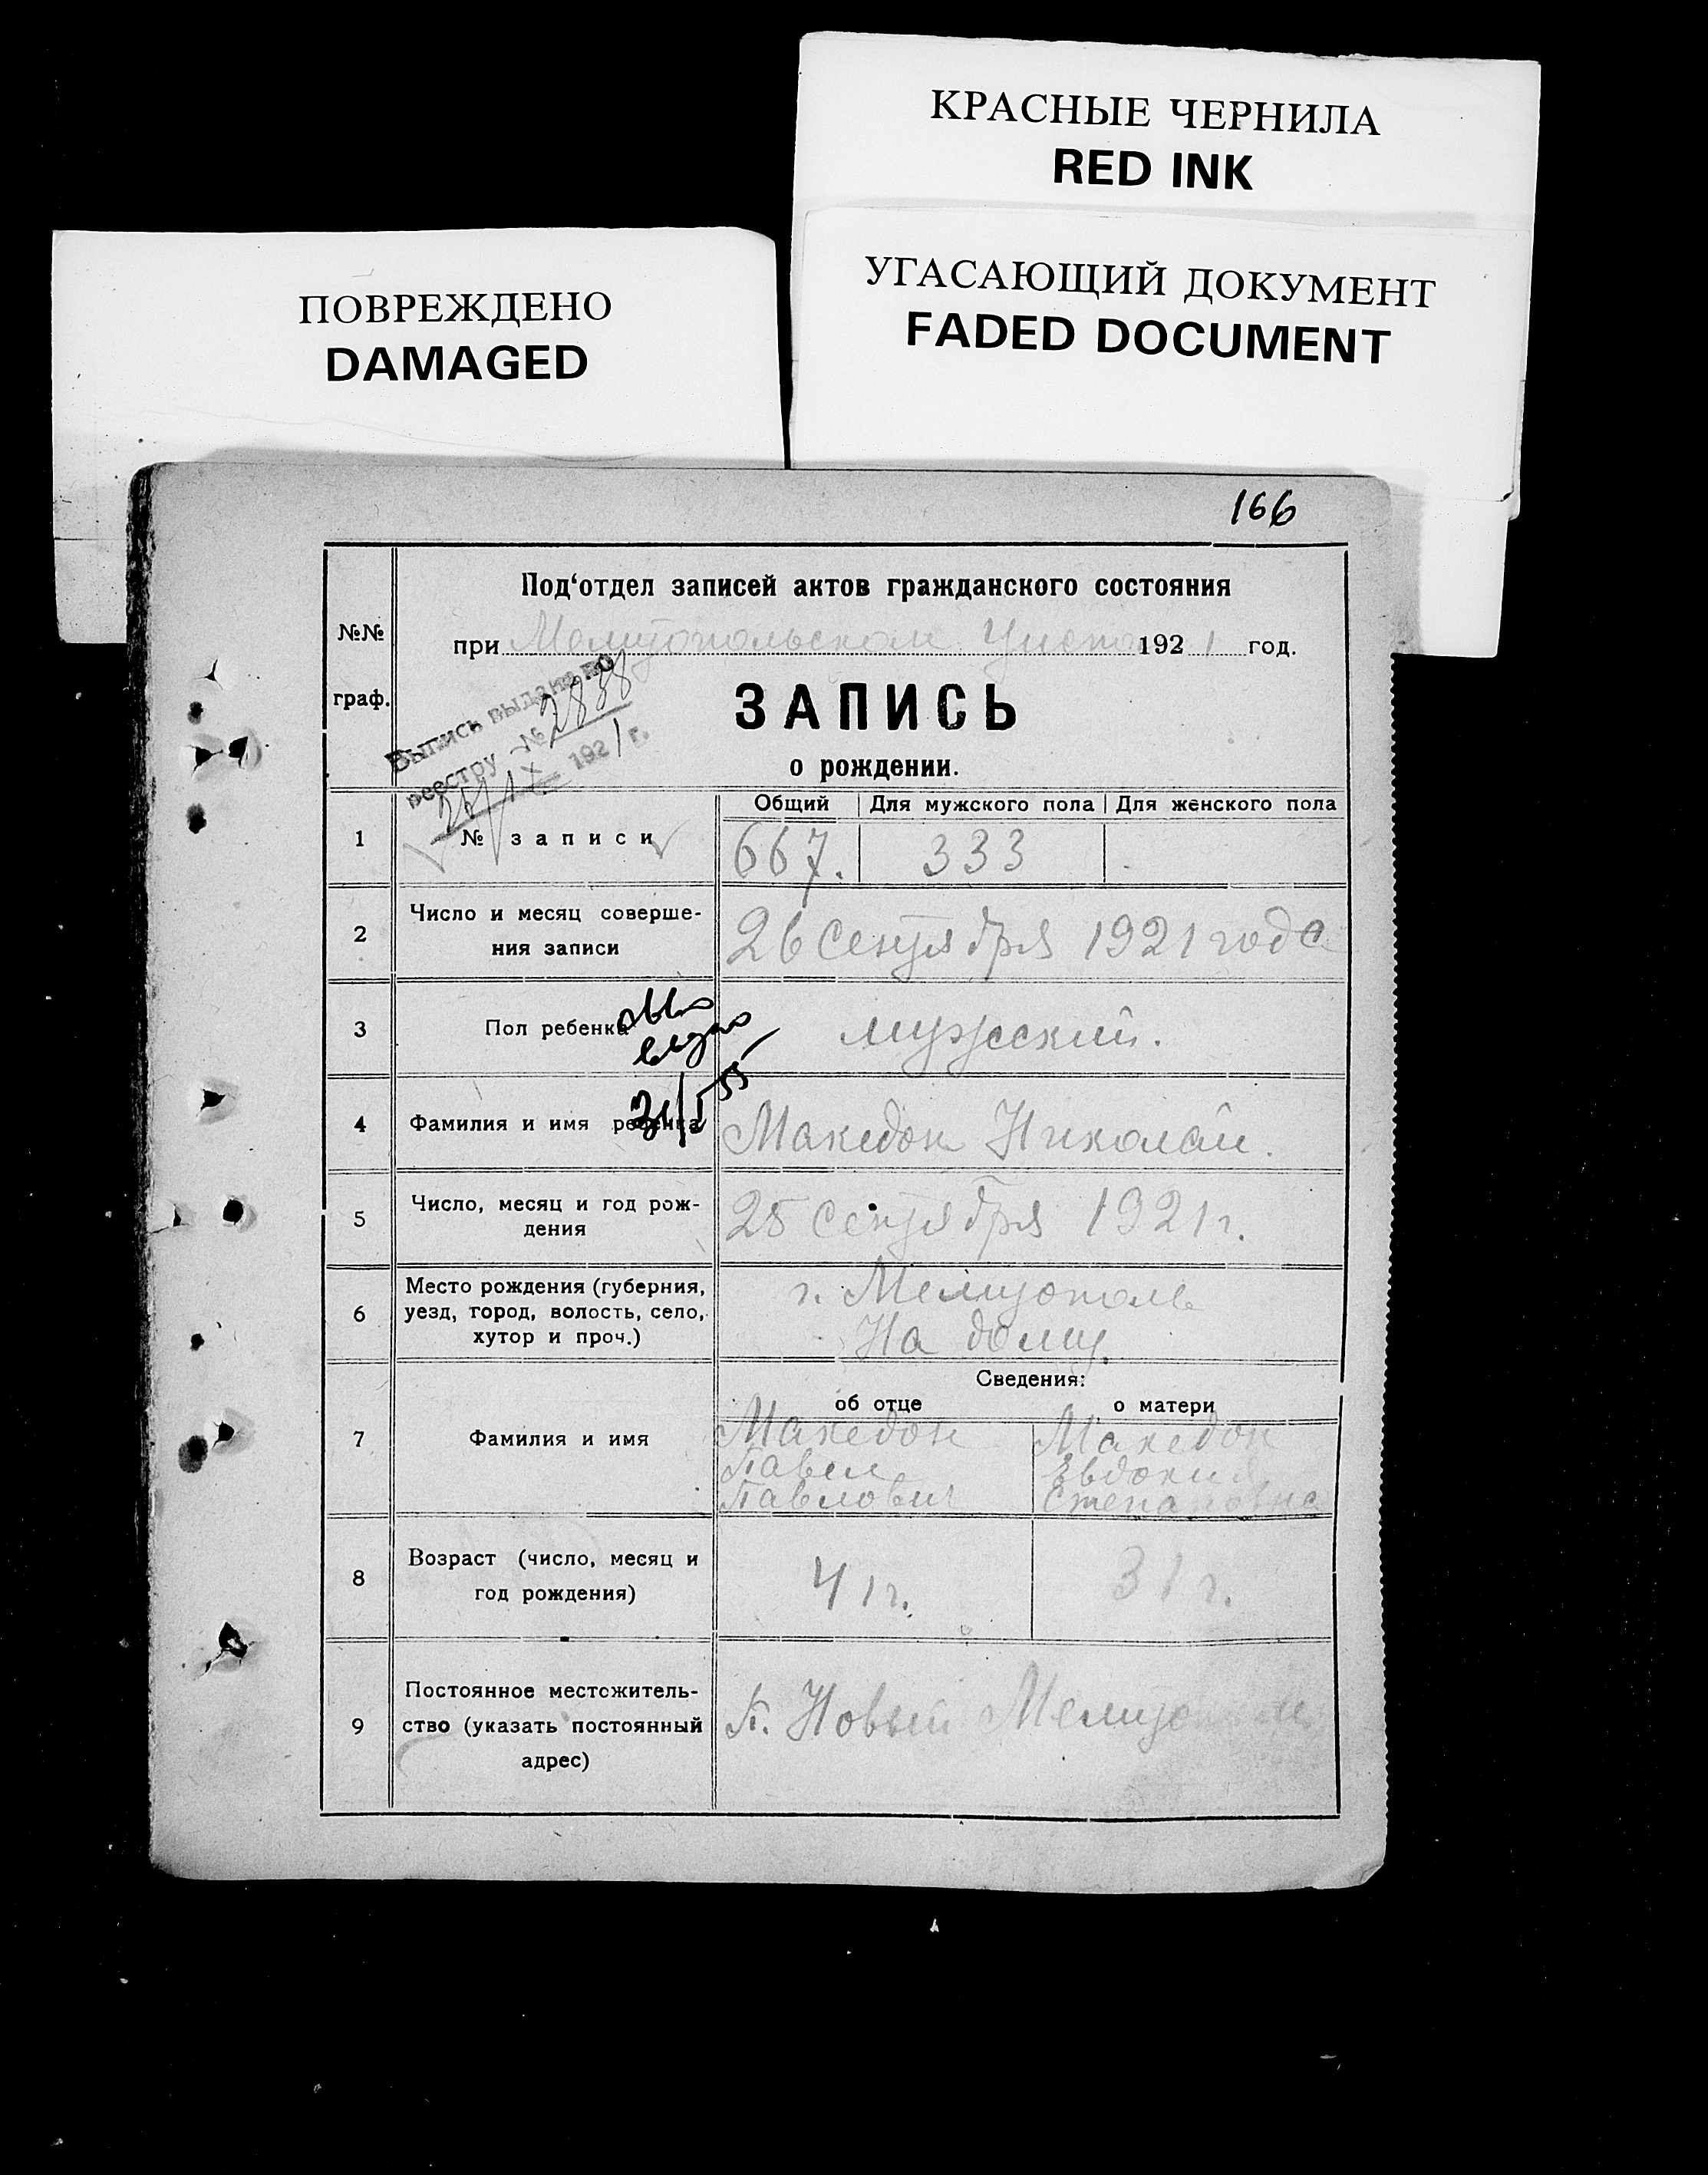 КРАСНЫЕ ЧЕРНИЛА
RED INK
УГАСАЮЩИЙ ДОКУМЕНТ
FADED DOCUMENT
ПОВРЕЖДЕНО
DAMAGED
166
№№
граф.
Под‘отдел записей актов гражданского состояния
при Мелитопольском 1921 год.
Выпись выдана по
реестру № 2838
1921 г.
ЗАПИСЬ
о рождении.
Общий Для мужского пола Для женского пола
1 № записи 667. 333
2 Число и месяц соверше-
ния записи
26 Сентября 1921 года
3 Пол ребенка мужеский.
4 Фамилия и имя ребенка Македон Николай.
5 Число, месяц и год рож-
дения
25 Сентября 1921 г.
6 Место рождения (губерния,
уезд, город, волость, село,
хутор и проч.)
г. Мелитополь
На дому.
Сведения:
об отце о матери
7 Фамилия и имя
Македон
Павел
Павлович
Македон
Евдокия
Степановна
8 Возраст (число, месяц и
год рождения)
41 г. 31 г.
9 Постоянное местожитель-
ство (указать постоянный
адрес)
К. Новый Мелитополь